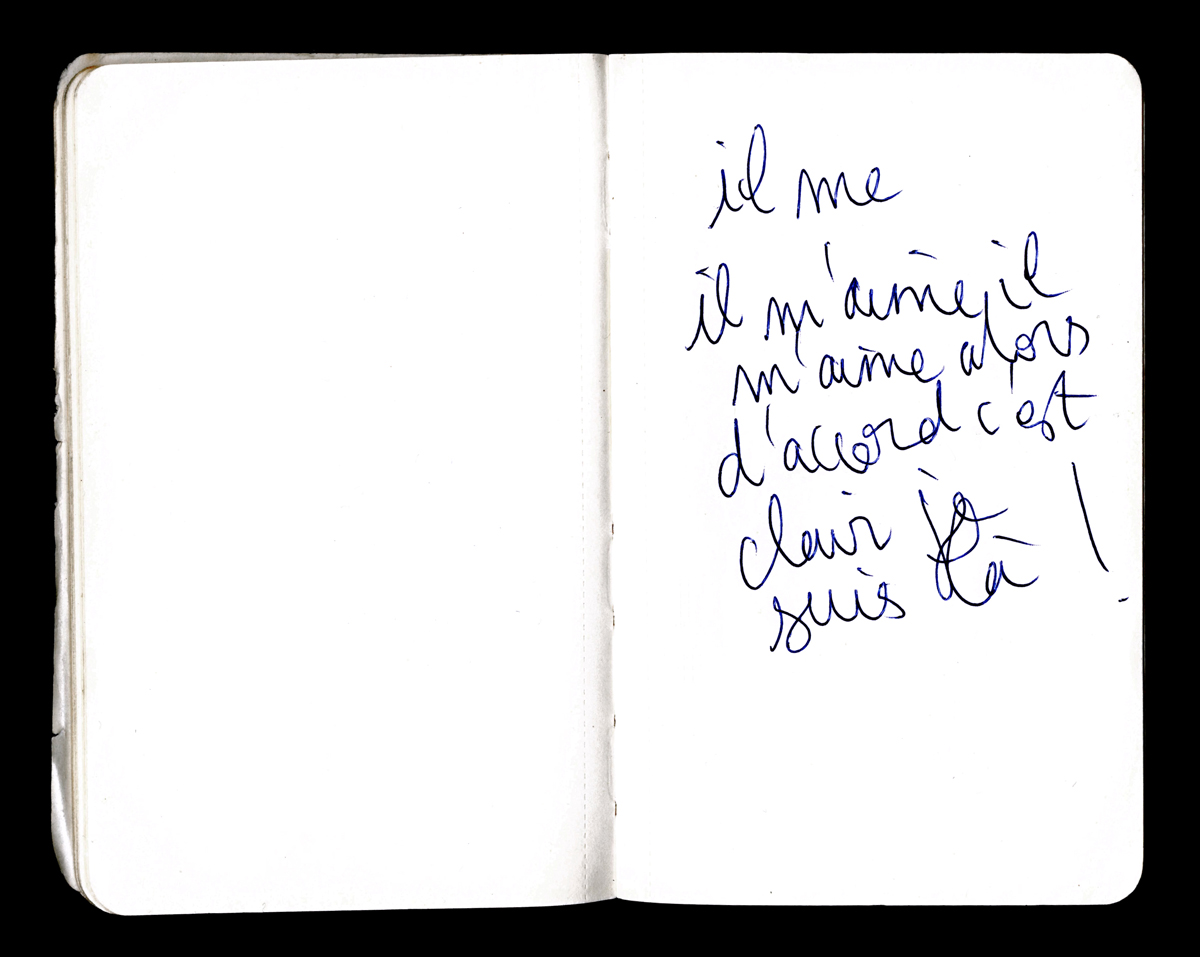 il me
il m'aime, il
m'aime, alors
d'accord c'est
clair je
suis là !